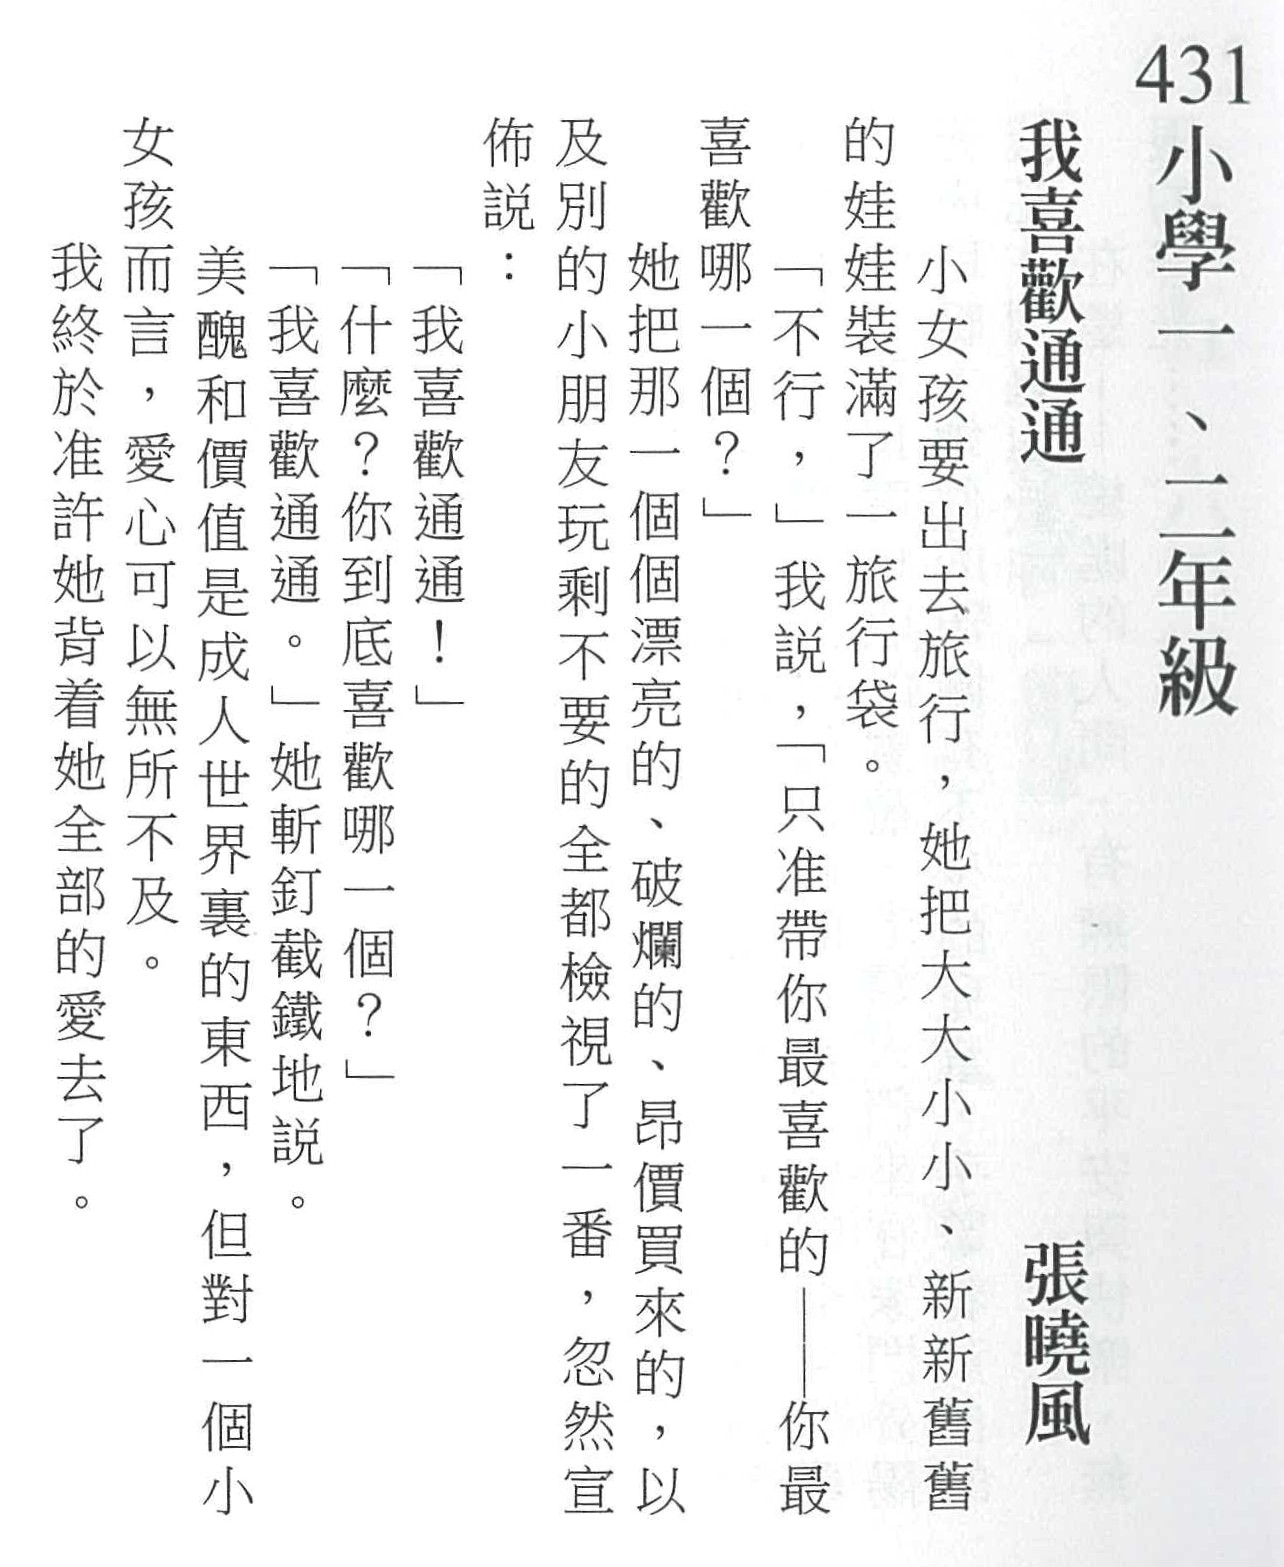 431
小學一、二年級
我喜歡通通　張曉風
小女孩要出去旅行，她把大大小小、新新舊舊
的娃娃裝滿了一旅行袋。
「不行，」我説，「只准帶你最喜歡的——你最
喜歡哪一個？」
她把那一個個漂亮的、破爛的、昂價買來的，以
及別的小朋友玩剩不要的全都檢視了一番，忽然宣
佈説：
「我喜歡通通！」
「什麼？你到底喜歡哪一個？」
「我喜歡通通。」她斬釘截鐵地説。
美醜和價值是成人世界裏的東西，但對一個小
女孩而言，愛心可以無所不及。
我終於准許她背着她全部的愛去了。